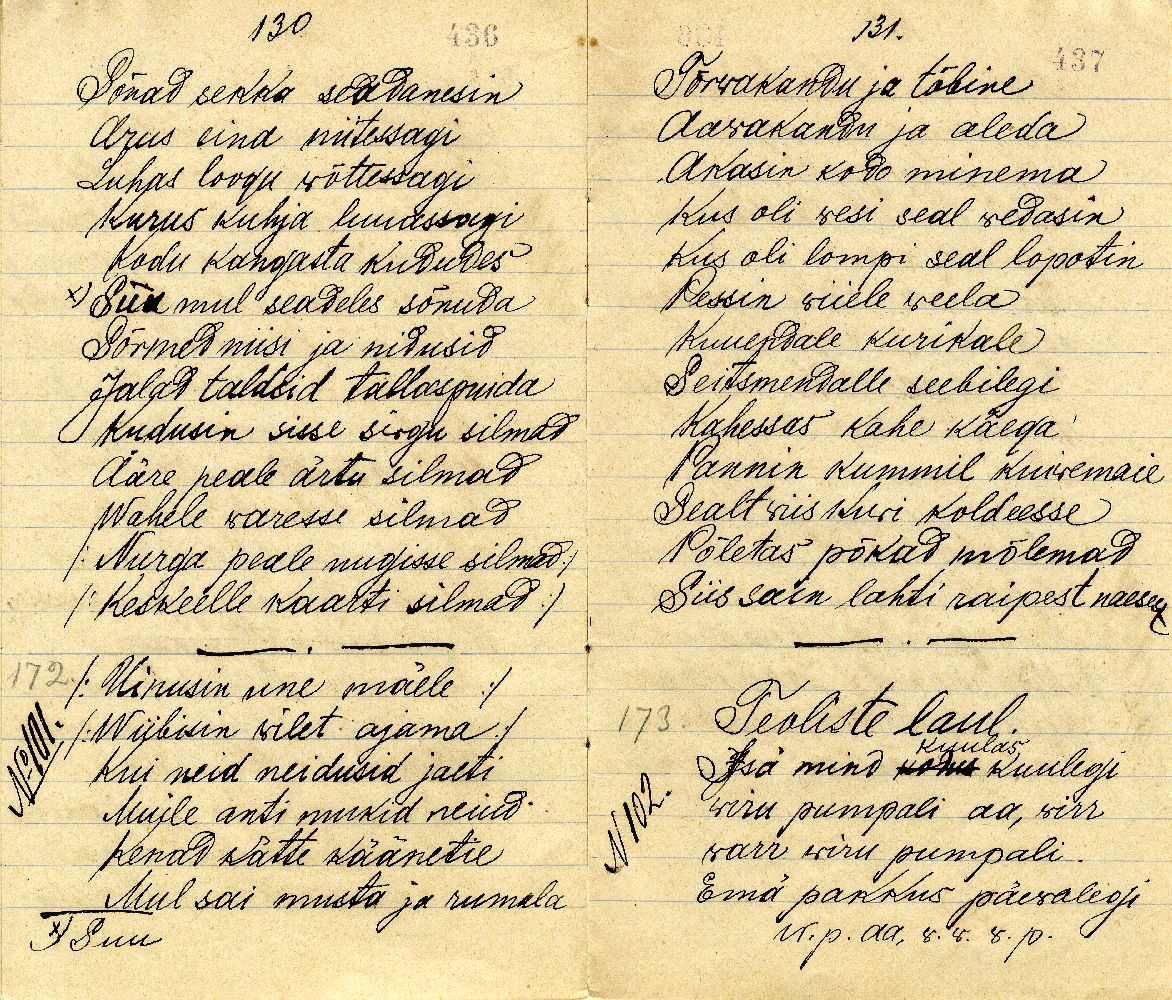 130
436
Sõnad sekka seadanesin
Arus eina niitessagi
Luhas loogu wõttessagi
Kurus kuhja luuassagi
Kodu kangasta kududes
x) Suu mul seadeles sõnuda
Sõrmed niisi ja nidusid
Jalad taldsid tallaspuida
Kudusin sisse sirgu silmad
Ääre peale ärtu silmad
Wahele waresse silmad
/: Nurga peale nugisse silmad :/
/: Keskeelle kaarti silmad :/
172.
No 101.
/: Uinusin une mäele :/
/: Wiibisin wilet ajama :/
Kui neid neidusid jaeti
Muile anti mukid neiud
Kenad kätte käänetie
Mul sai musta ja rumala
x) Suu
131.
437
Tõrwakandu ja tõbine
Aawakandu ja aleda
Akasin kodo minema
Kus oli wesi seal wedasin
Kus oli lompi seal lopotin
Pessin wiiele weela
Kuuendale kurikale
Seitsmendalle seebilegi
Kahessas kahe käega
Pannin kummil kuiwemaie
Sealt wiis kuri koldeesse
Põletas põkad mõlemad
Siis sain lahti raipest naesest
173.
Teoliste laul.
N 102.
kuulas
Isä mind kodu kuulegi
wiru pumpali aa, wirr
warr wiru pumpali.
Emä pakkus päewalegi
w. p. aa, w. w. w. p.